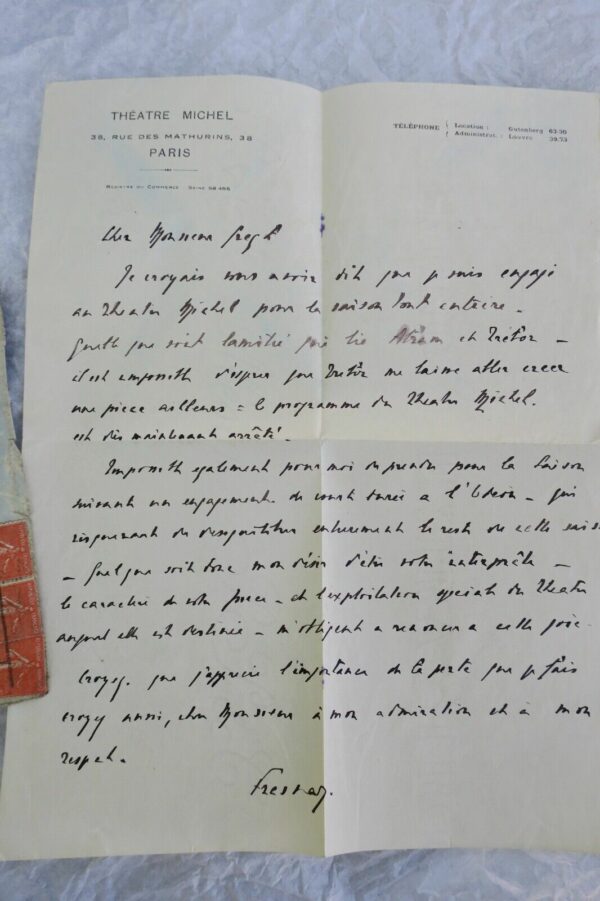 THÉATRE MICHEL
38, RUE DES MATHURINS, 38
PARIS
REGISTRE DU COMMERCE SEINE
TÉLÉPHONE { Location : Gutenberg 63-30
Administrat. : Louvre 39.73
Cher Monsieur
Je croyais vous avoir dit que je suis engagé
au Theatre Michel pour la saison tout entière.
Quelle que soit l'amitié qui lie et Trébor -
il est impossible d'espérer que Trébor me laisse aller créer
une piece ailleurs = le programme du Theatre Michel.
est dès maintenant arrêté.
Impossible egalement pour moi de prendre pour la saison
suivant un engagement de courte durée a l'Odéon - qui
risquerait de desequilibrer entierement le reste de cette sais
- Quelque soit donc mon désir d'être votre interprète -
le caractère de votre piece - et l'exploitation speciale du Theatre
auquel elle est destinée - m'obligent a renoncer a cette joie.
Croyez que j'apprécie l'importance de la perte que je fais
croyez aussi, cher Monsieur à mon admiration et à mon
respect.
Fresnay.